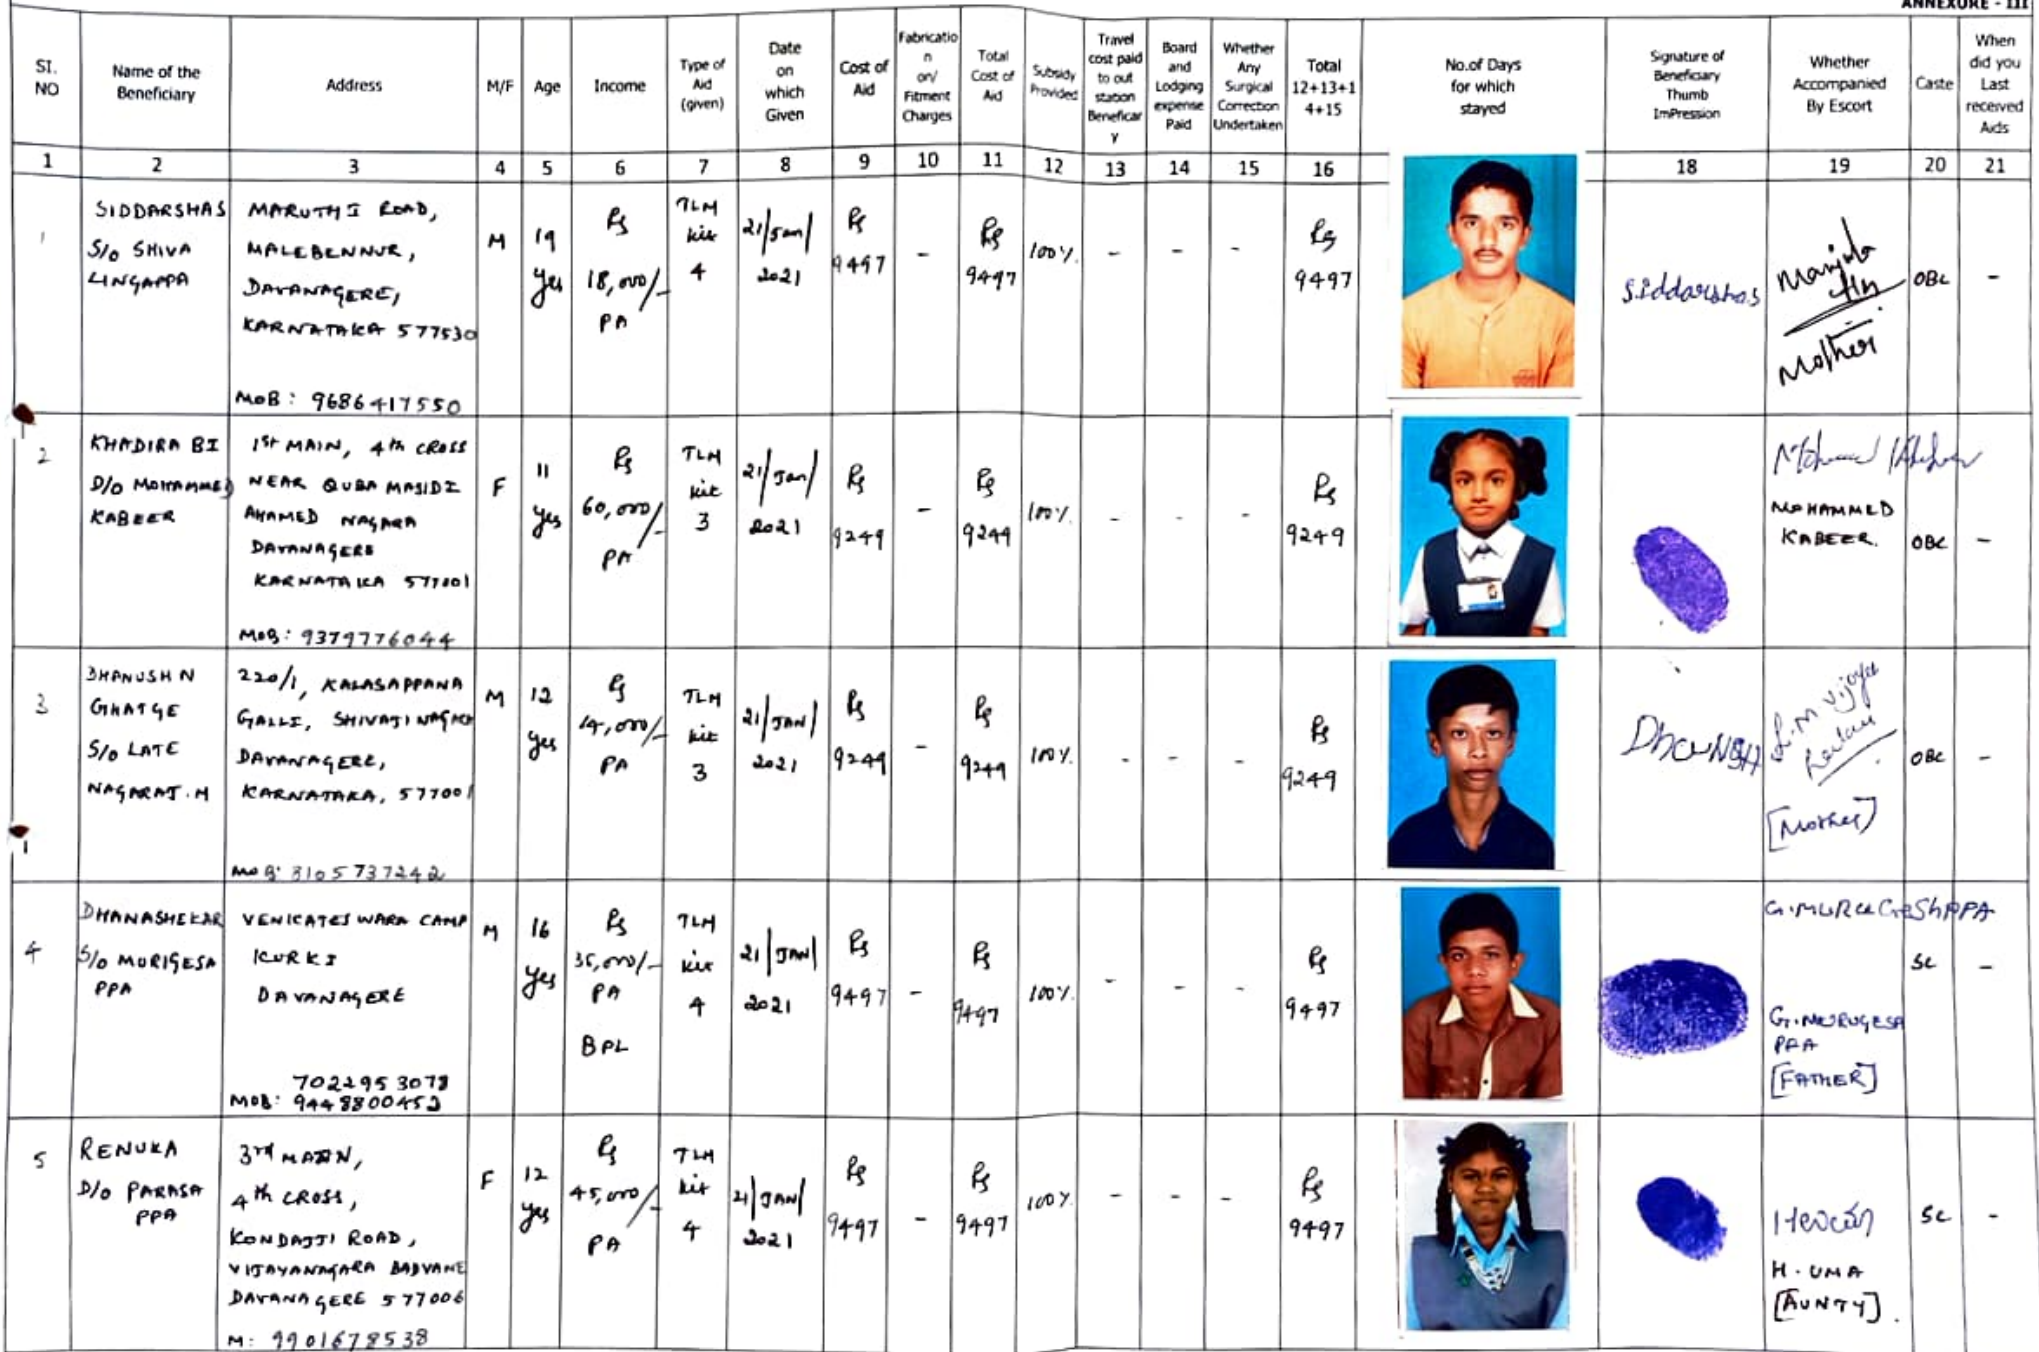 ANNEXURE - III
SI. NO
Name of the Beneficiary
Address
M/F
Age
Income
Type of Aid (given)
Date on which Given
Cost of Aid
Fabricatio n on/ Fitment Charges
Total Cost of Aid
Subsidy Provided
Travel cost paid to out station Beneficar y
Board and Lodging expense Paid
Whether Any Surgical Correction Undertaken
Total 12+13+1 4+15
No.of Days for which stayed
Signature of Beneficiary Thumb ImPression
Whether Accompanied By Escort
Caste
When did you Last received Aids
1 2 3 4 5 6 7 8 9 10 11 12 13 14 15 16 18 19 20 21
1
SIDDARSHAS
S/o SHIVA
LINGAPPA
MARUTHI ROAD,
MALEBENNUR,
DAVANAGERE,
KARNATAKA 577530
MOB: 9686417550
M
19
yes
Rs
18,000/-
PA
TLM
kit
4
21/Jan/
2021
Rs
9497
-
Rs
9497
100%
-
-
-
Rs
9497
Siddarshas
Manjula
Mother
OBC
-
2
KHADIRA BI
D/o MOHAMMED
KABEER
1st MAIN, 4th CROSS
NEAR QUBA MASIDI
AHAMED NAGARA
DAVANAGERE
KARNATAKA 577001
MOB: 9379776044
F
11
yes
Rs
60,000/-
PA
TLM
kit
3
21/Jan/
2021
Rs
9249
-
Rs
9249
100%
-
-
-
Rs
9249
MOHAMMED
KABEER.
OBC
-
3
DHANUSH N
GHATGE
S/o LATE
NAGARAJ.M
220/1, KALASAPPANA
GALLI, SHIVAJI NAGAR
DAVANAGERE,
KARNATAKA, 577001
MOB: 3105737242
M
12
yes
Rs
14,000/-
PA
TLM
kit
3
21/JAN/
2021
Rs
9249
-
Rs
9249
100%
-
-
-
Rs
9249
[Mother]
OBC
-
4
DHANASHEKAR
S/o MURIGESA
PPA
VENKATESWARA CAMP
KURKI
DAVANAGERE
7022953078
MOB: 9448800452
M
16
yes
Rs
35,000/-
PA
BPL
TLM
kit
4
21/JAN/
2021
Rs
9497
-
Rs
9497
100%
-
-
-
Rs
9497
G.MURUGESHPPA
G.MURUGESA
PPA
[FATHER]
SC
-
5
RENUKA
D/o PARASA
PPA
3rd MAIN,
4th CROSS,
KONDAJJI ROAD,
VIJAYANAGARA BADVANE
DAVANAGERE 577006
M: 9901678538
F
12
yes
Rs
45,000/-
PA
TLM
kit
4
21/JAN/
2021
Rs
9497
-
Rs
9497
100%
-
-
-
Rs
9497
H. UMA
[AUNTY].
SC
-